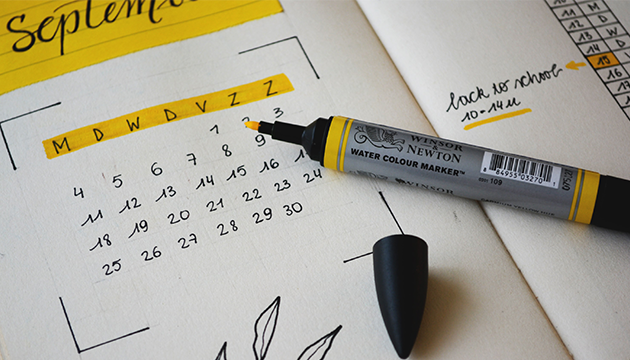 Septem
M D W D V Z Z
1 2 3
4 5 6 7 8 9
11 12 13 14 15 16
18 19 20 21 22 23 24
25 26 27 28 29 30
11 M
12 D
13 W
14 D
15
16
17
back to school
10-14u
WINSOR
& NEWTON
WATER COLOUR MARKER™
109
8 84955 03270 1
WINSOR